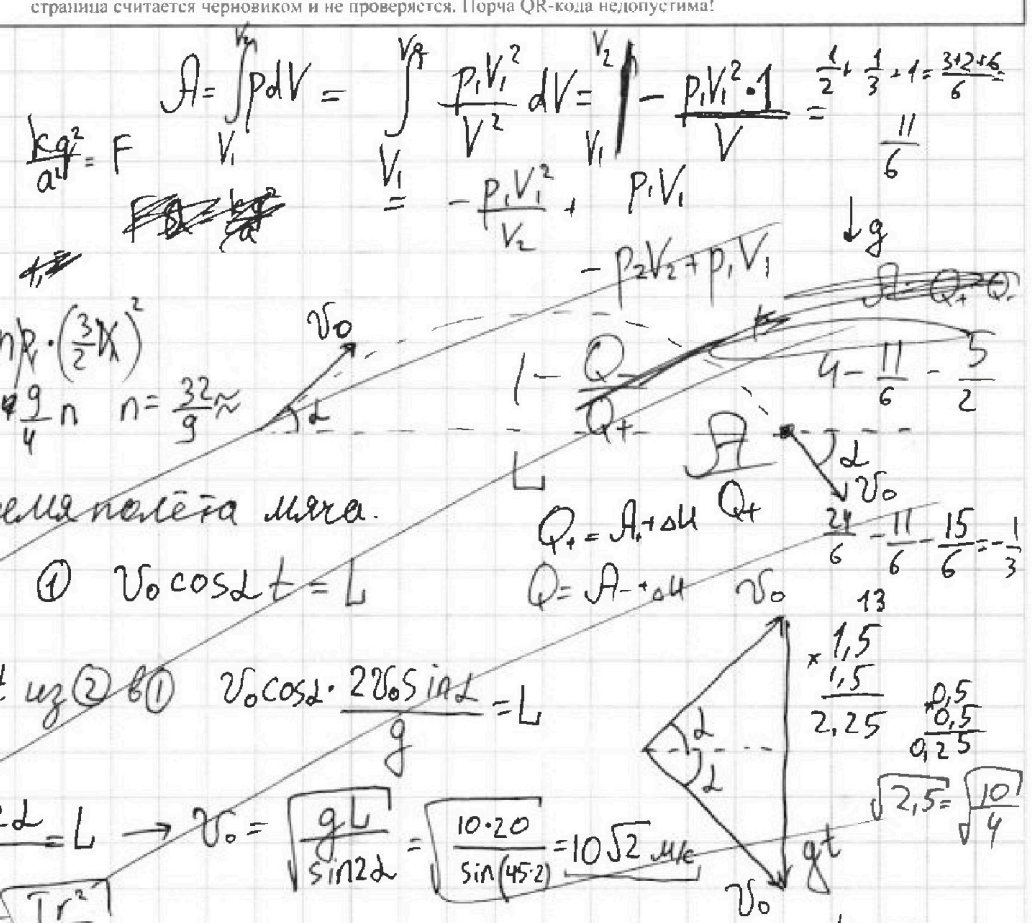 страница считается черновиком и не проверяется. Порча QR-кода недопустима!
A = ∫ p dV = ∫ p₁V₁²/V² dV = | - p₁V₁²·1/V =
V₁ V₁ V₂ V₁
1/2 + 1/3 + 1 = (3+2+6)/6 =
11/6
kq²/a⁴ = F
= - p₁V₁²/V₂ + p₁V₁
↓g
- p₂V₂ + p₁V₁
·(3/2 )²
9/4 n n = 32/9 ≈
v₀
α
1 - Q₋/Q₊
4 - 11/6 - 5/2
L
A/Q₊
α
v₀
емя полёта мяча.
Q₊ = A₊ + ΔU
24/6 - 11/6 - 15/6 = -1/3
① v₀ cosα t = L
Q = A₋ + ΔU
v₀
13
× 1,5
1,5
2,25
из ② в ① v₀ cosα · 2v₀ sinα/g = L
0,5
0,5
0,25
α
α
√2,5 = √(10/4)
α = L → v₀ = √(gL/sin2α) = √(10·20/sin(45·2)) = 10√2 м/с
gt
v₀